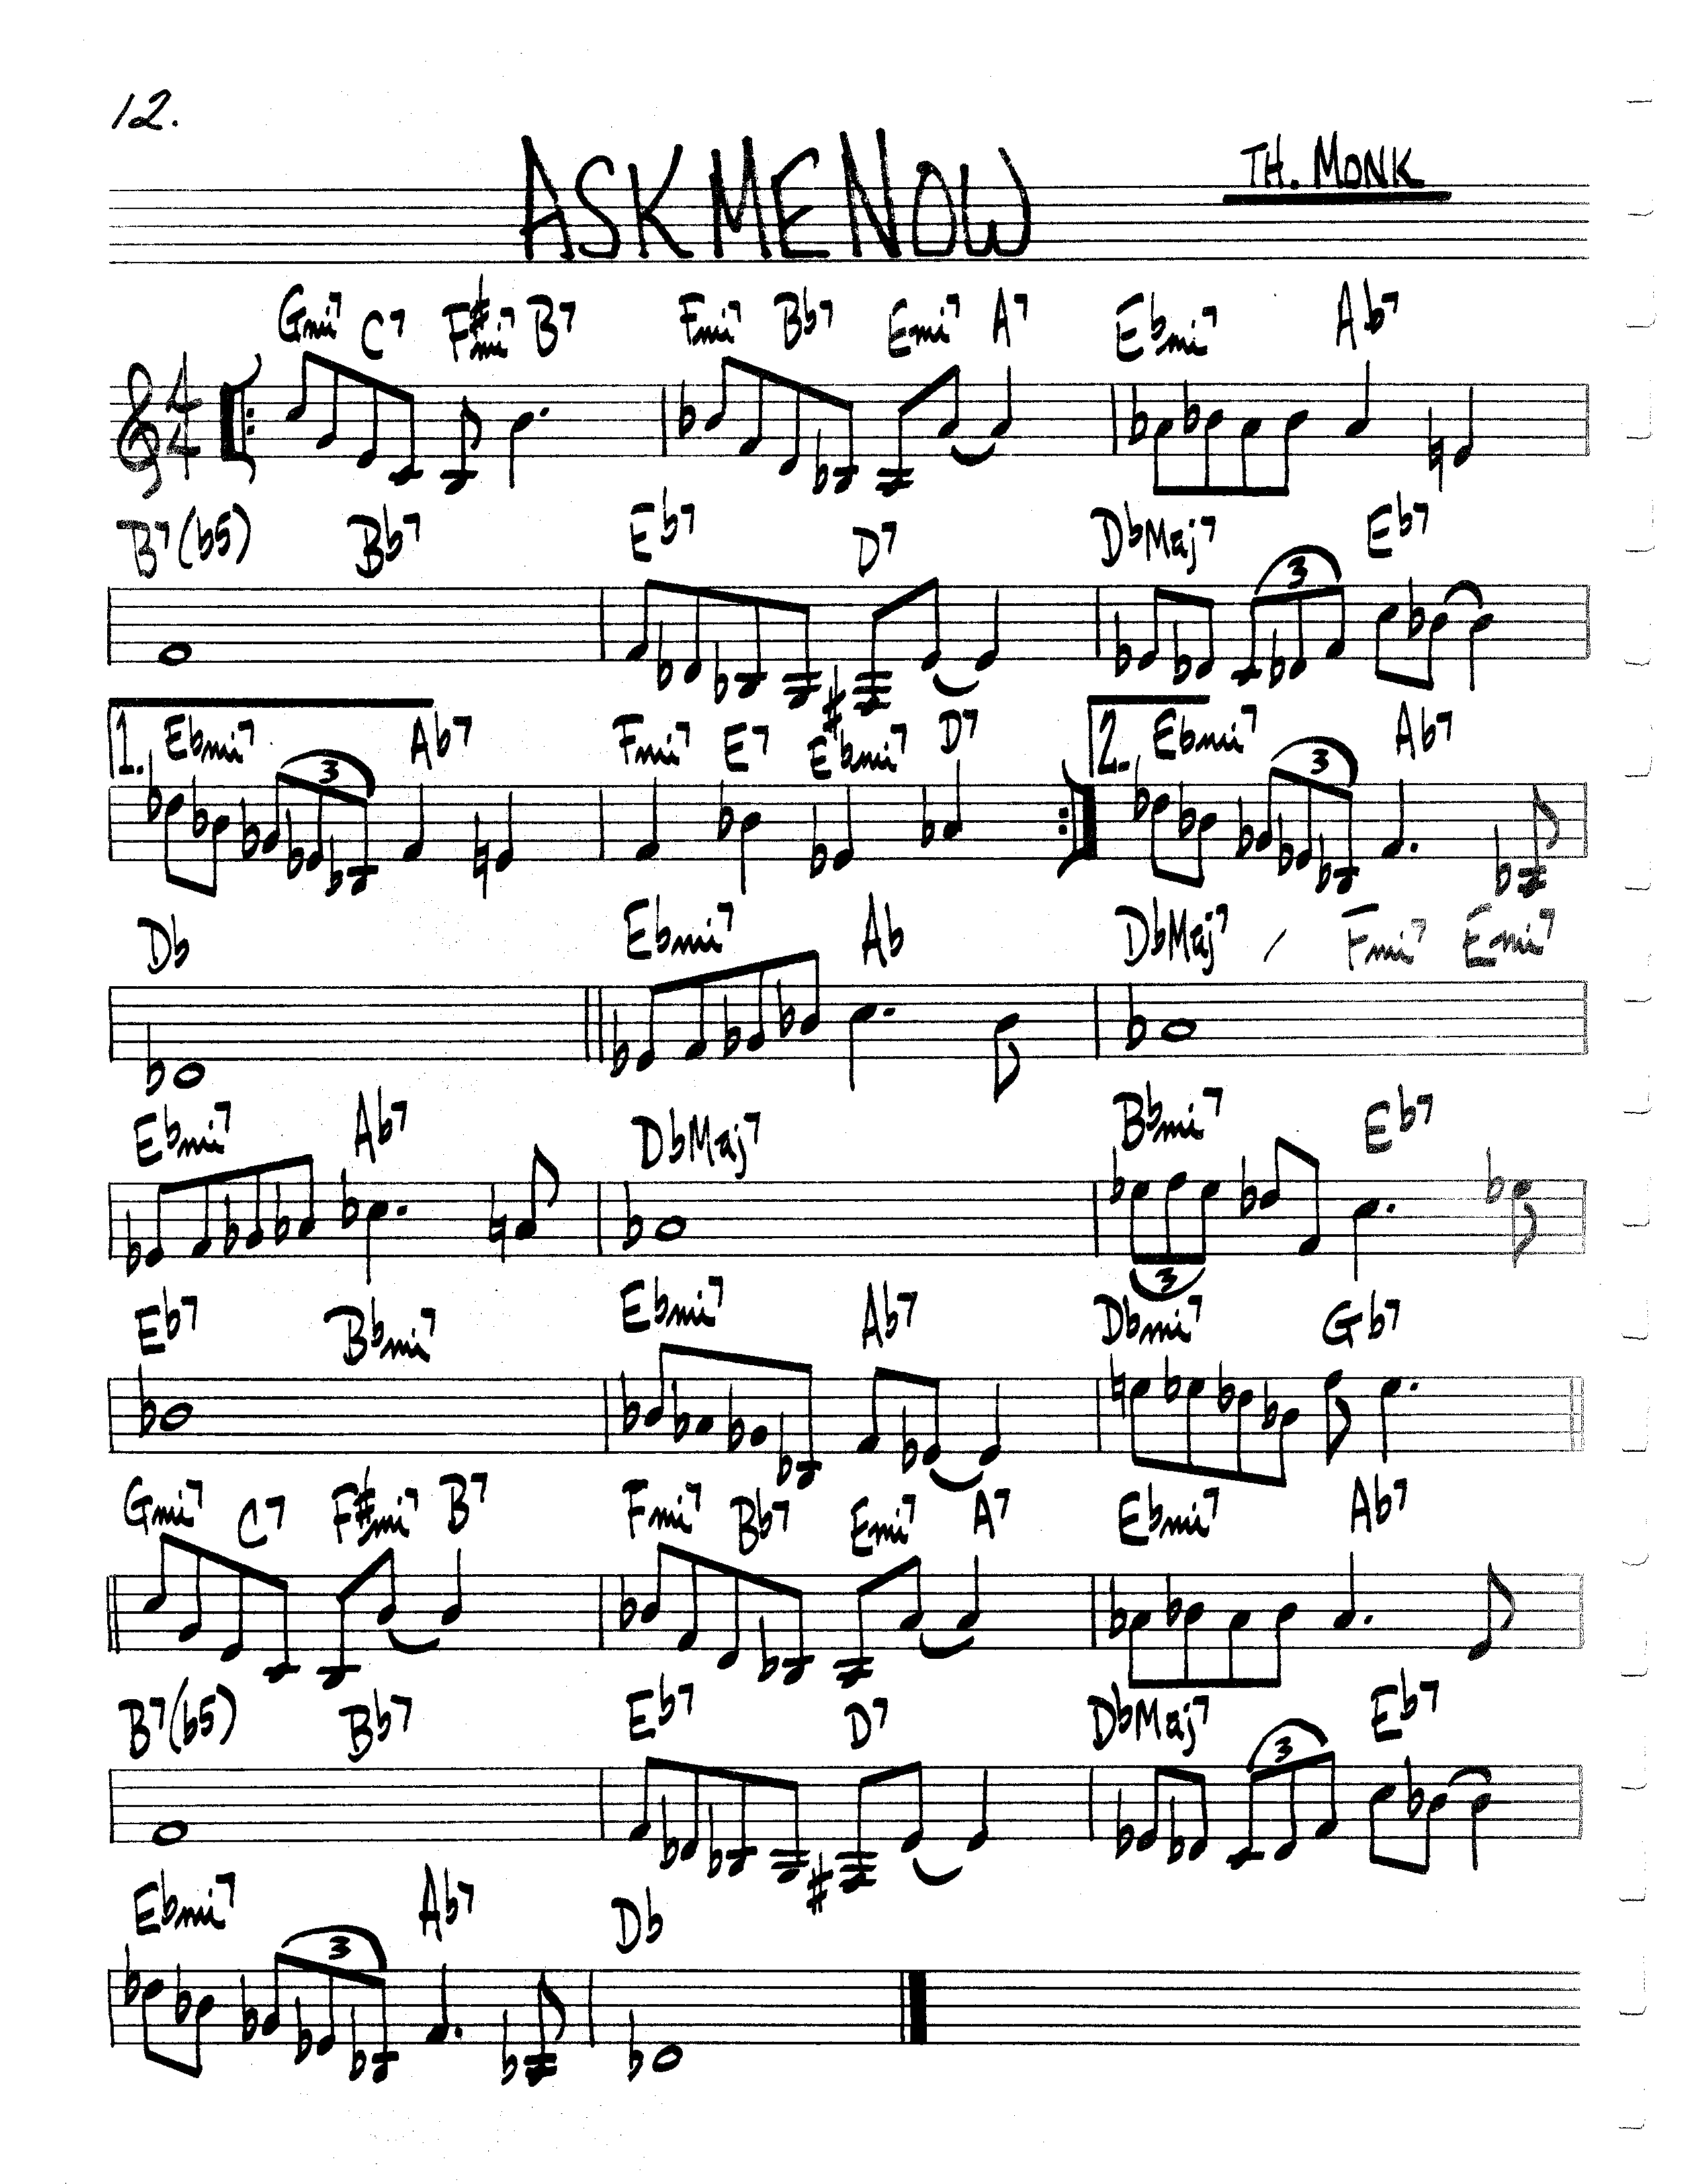 12.
ASK ME NOW
TH. MONK
Gmi7 C7 F#mi7 B7 Fmi7 Bb7 Emi7 A7 Ebmi7 Ab7
4
4
B7(b5) Bb7 Eb7 D7 DbMaj7 Eb7
3
1. Ebmi7 Ab7 Fmi7 E7 Ebmi7 D7 2. Ebmi7 Ab7
3 3
Db Ebmi7 Ab DbMaj7 / Fmi7 Emi7
Ebmi7 Ab7 DbMaj7 Bbmi7 Eb7
3
Eb7 Bbmi7 Ebmi7 Ab7 Dbmi7 Gb7
Gmi7 C7 F#mi7 B7 Fmi7 Bb7 Emi7 A7 Ebmi7 Ab7
B7(b5) Bb7 Eb7 D7 DbMaj7 Eb7
3
Ebmi7 Ab7 Db
3